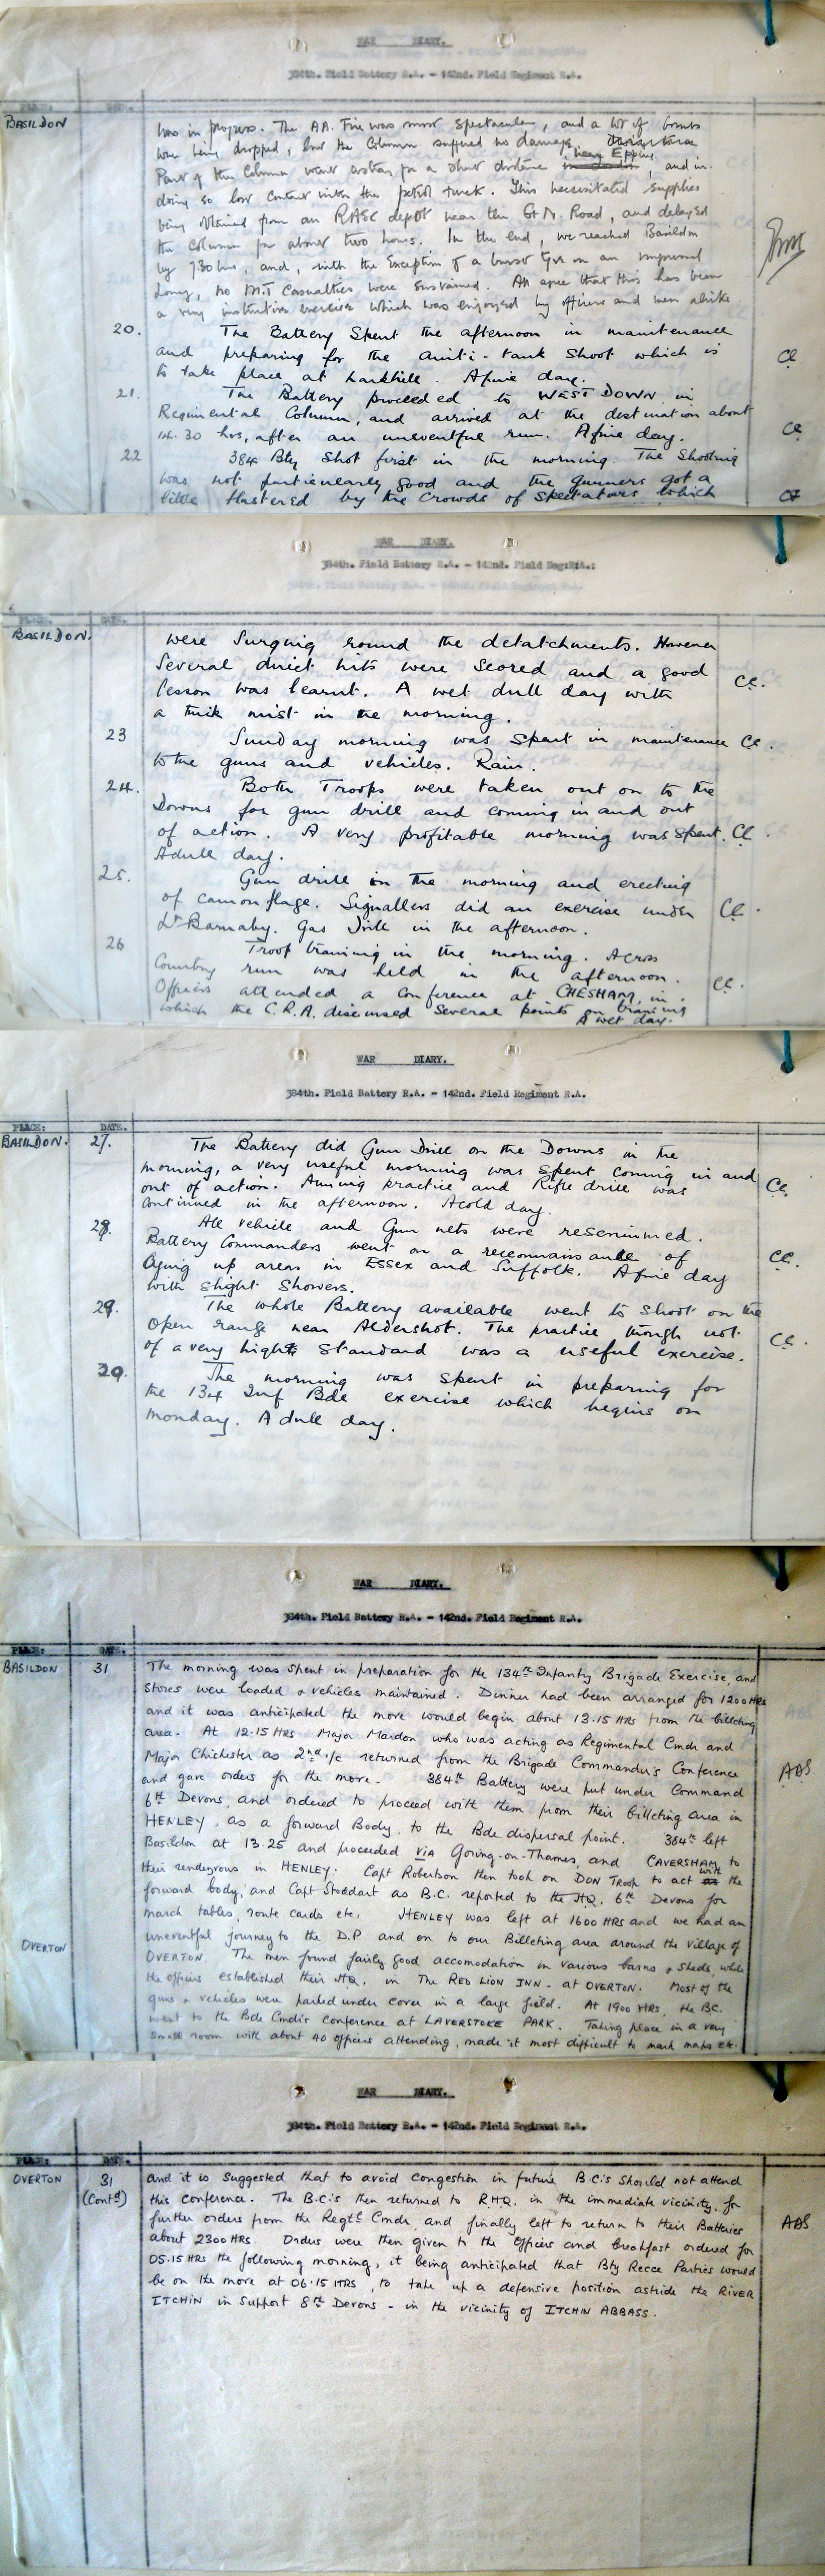 WAR DIARY.
384th. Field Battery R.A. - 142nd. Field Regiment R.A.
PLACE: DATE.
BASILDON
was in progress. The AA. Fire was most spectacular, and a lot of bombs
were being dropped, but the Column suffered no damage
Part of the Column went astray for a short distance near Epping, and in
doing so lost contact with the petrol truck. This necessitated supplies
being obtained from an RASC depot near the Gt N. Road, and delayed
the Column for about two hours. In the end, we reached Basildon
by 730 hrs, and, with the exception of a burst tyre on an impressed
Lorry, no M.T casualties were sustained. All agree that this has been
a very instructive exercise which was enjoyed by officers and men alike
20. The Battery Spent the afternoon in maintenance
and preparing for the anti-tank Shoot which is
to take place at Larkhill. A fine day. Cl
21. The Battery proceeded to WEST DOWN in
Regimental Column, and arrived at the destination about
14.30 hrs, after an uneventful run. A fine day. Cl
22 384 Bty Shot first in the morning. The Shooting
was not particularly good and the gunners got a
little flustered by the crowds of spectators which Cl
WAR DIARY.
384th. Field Battery R.A. - 142nd. Field Reg:R.A.:
PLACE: DATE.
BASILDON.
were Surging round the detatchments. However
Several direct hits were scored and a good
lesson was learnt. A wet dull day with Cl.
a thick mist in the morning.
23 Sunday morning was spent in maintenance Cl.
to the guns and vehicles. Rain.
24. Both Troops were taken out on to the
Downs for gun drill and coming in and out
of action. A very profitable morning was spent. Cl.
A dull day.
25. Gun drill in the morning and erecting
of camouflage. Signallers did an exercise under Cl.
Lt Barnaby. Gas Drill in the afternoon.
26 Troop training in the morning. Across
Country run was held in the afternoon.
Officers attended a conference at CHESHAM, in Cl.
which the C.R.A. discussed several points on training
A wet day.
WAR DIARY.
384th. Field Battery R.A. - 142nd. Field Regiment R.A.
PLACE: DATE.
BASILDON. 27. The Battery did Gun Drill on the Downs in the
morning, a very useful morning was spent coming in and
out of action. Aiming practice and Rifle drill was Cl.
continued in the afternoon. A cold day.
28. All vehicle and Gun nets were rescrimmed.
Battery Commanders went on a reconnaisance of
lying up areas in Essex and Suffolk. A fine day Cl.
with slight Showers.
29. The whole Battery available went to shoot on the
open range near Aldershot. The practice though not
of a very high standard was a useful exercise. Cl.
30. The morning was spent in preparing for
the 134 Inf Bde exercise which begins on
Monday. A dull day.
WAR DIARY.
384th. Field Battery R.A. - 142nd. Field Regiment R.A.
PLACE: DATE.
BASILDON 31 The morning was spent in preparation for the 134th Infantry Brigade Exercise, and
stores were loaded & vehicles maintained. Dinner had been arranged for 1200 HRS
and it was anticipated the move would begin about 13.15 HRS from the billeting
area. At 12.15 HRS Major Mardon who was acting as Regimental Cmdr and
Major Chichester as 2nd i/c returned from the Brigade Commander's Conference
and gave orders for the move. 384th Battery were put under Command ABS
6th Devons, and ordered to proceed with them from their billeting area in
HENLEY, as a forward Body, to the Bde dispersal point. 384th left
Basildon at 13.25 and proceeded VIA Goring-on-Thames, and CAVERSHAM to
their rendezvous in HENLEY. Capt Robertson then took on DON Troop to act with the
forward body, and Capt Stoddart as B.C. reported to the HQ. 6th Devons for
march tables, route cards etc. HENLEY was left at 1600 HRS and we had an
uneventful journey to the D.P and on to our Billeting area around the village of
OVERTON OVERTON. The men found fairly good accomodation in various barns & sheds, while
the officers established their HQ. in THE RED LION INN - at OVERTON. Most of the
guns & vehicles were parked under cover in a large field. At 1900 HRS, the BC.
went to the Bde Cmdr's conference at LAVERSTOKE PARK. Taking place in a very
small room with about 40 officers attending, made it most difficult to mark maps etc.
WAR DIARY.
384th. Field Battery R.A. - 142nd. Field Regiment R.A.
PLACE: DATE.
OVERTON 31 (Contd) and it is suggested that to avoid congestion in future B.C's should not attend
this conference. The B.C's then returned to R.H.Q. in the immediate vicinity, for
further orders from the Regtl Cmdr, and finally left to return to their Batteries ABS
about 2300 HRS. Orders were then given to the Officers and breakfast ordered for
05.15 HRS the following morning, it being anticipated that Bty Recce Parties would
be on the move at 06.15 HRS, to take up a defensive position astride the RIVER
ITCHIN in support 8th Devons - in the vicinity of ITCHIN ABBASS.